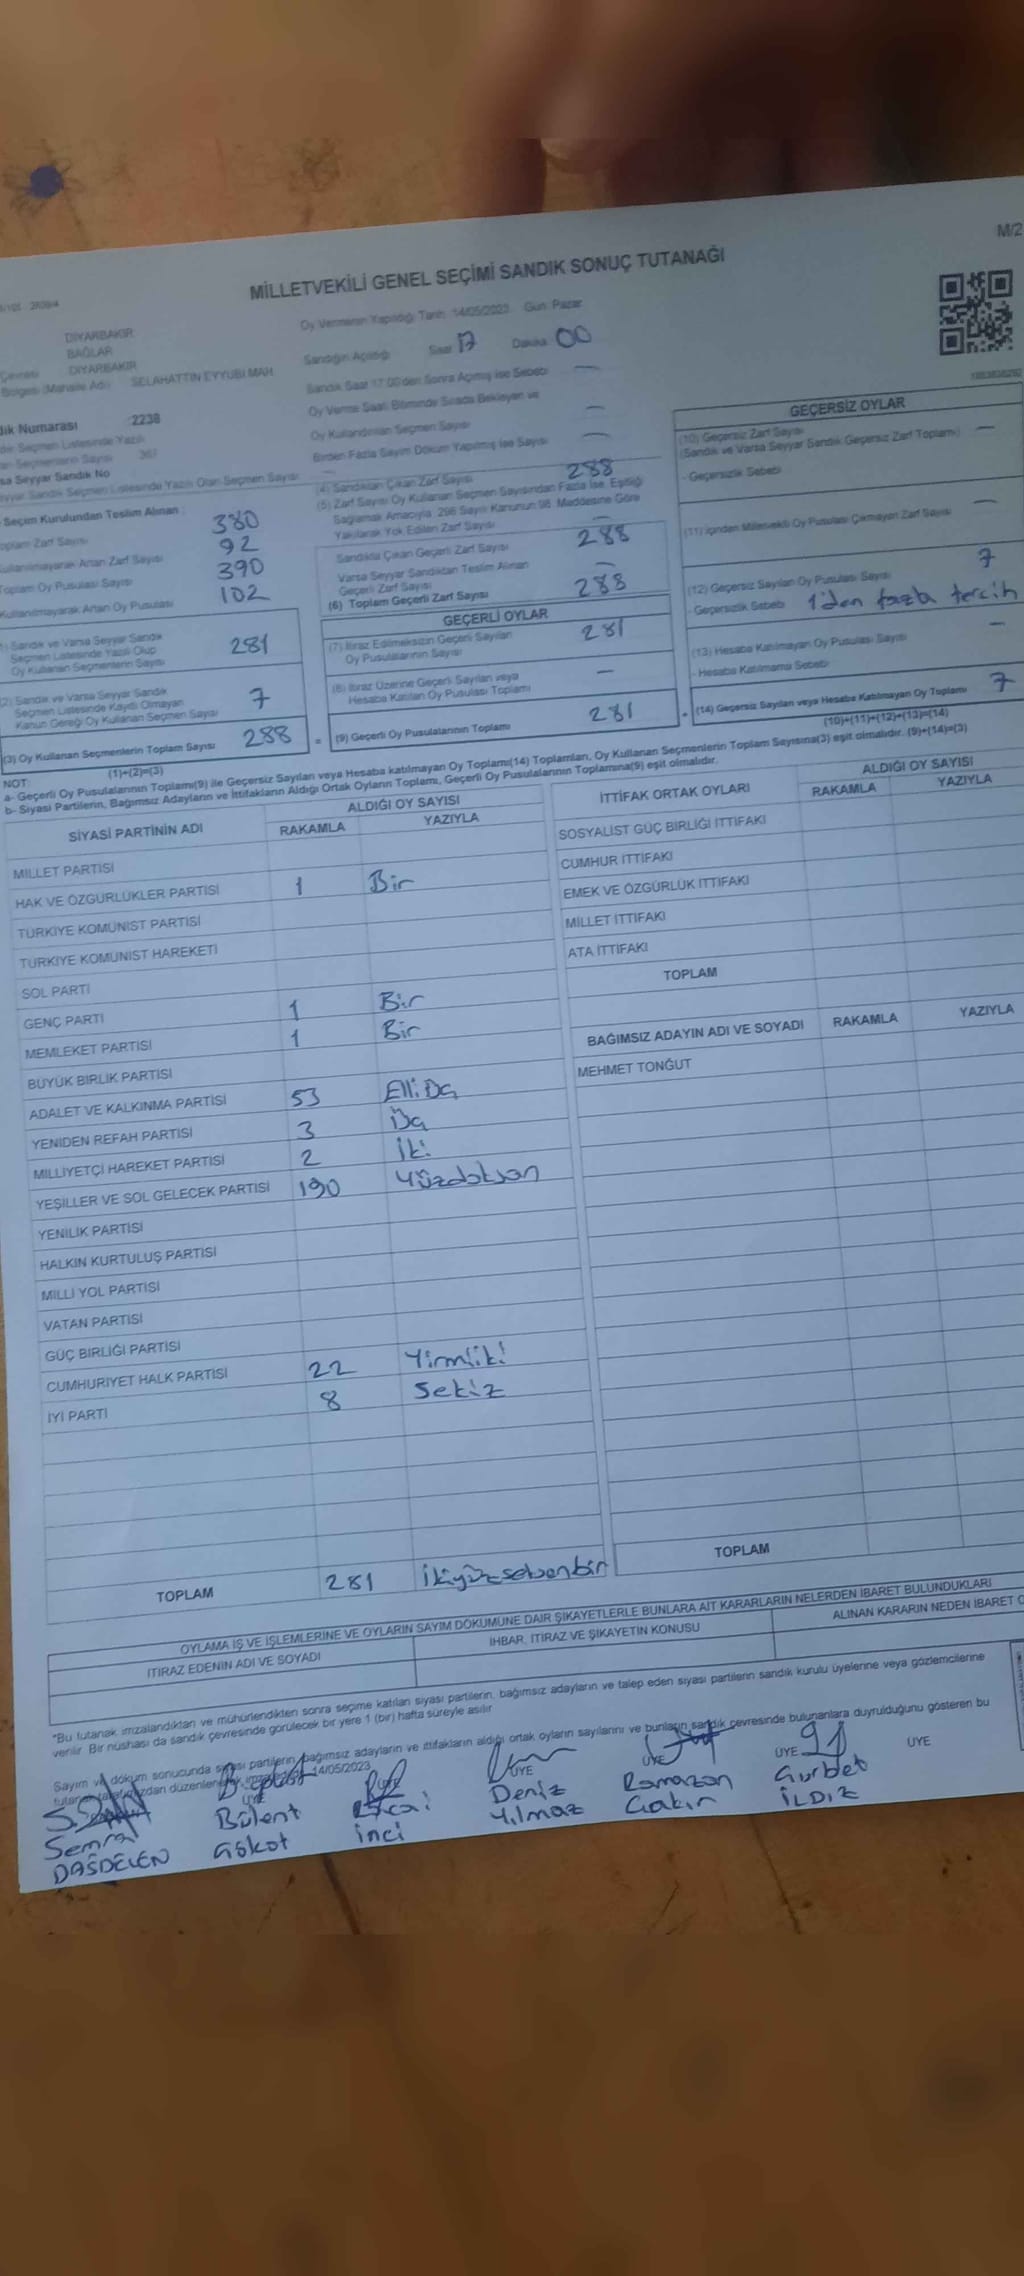 M/2
MİLLETVEKİLİ GENEL SEÇİMİ SANDIK SONUÇ TUTANAĞI
DİYARBAKIR
BAĞLAR
DİYARBAKIR
Bölgesi (Mahalle Adı) SELAHATTİN EYYUBİ MAH.
Numarası :2238
Seçmen Listesinde Yazılı
Seyyar Sandık No
Seyyar Sandık Seçmen Listesinde Yazılı Olan Seçmen Sayısı
Oy Vermenin Yapıldığı Tarih :14/05/2023 Gün: Pazar
Sandığın Açıldığı Saat 17 Dakika 00
Sandık Saat 17:00'den Sonra Açılmış İse Sebebi —
Oy Verme Saati Bitiminde Sırada Bekleyen ve
Oy Kullandırılan Seçmen Sayısı —
Birden Fazla Sayım Döküm Yapılmış İse Sayısı —
Seçim Kurulundan Teslim Alınan
Toplam Zarf Sayısı 380
Kullanılmayarak Artan Zarf Sayısı 92
Toplam Oy Pusulası Sayısı 390
Kullanılmayarak Artan Oy Pusulası 102
(1) Sandık ve Varsa Seyyar Sandık
Seçmen Listesinde Yazılı Olup
Oy Kullanan Seçmenlerin Sayısı 281
(2) Sandık ve Varsa Seyyar Sandık
Seçmen Listesinde Kaydı Olmayan
Kanun Gereği Oy Kullanan Seçmen Sayısı 7
(3) Oy Kullanan Seçmenlerin Toplam Sayısı 288
(1)+(2)=(3)
(4) Sandıktan Çıkan Zarf Sayısı 288
(5) Zarf Sayısı Oy Kullanan Seçmen Sayısından Fazla İse, Eşitliği
Sağlamak Amacıyla, 298 Sayılı Kanunun 98. Maddesine Göre
Yakılarak Yok Edilen Zarf Sayısı —
Sandıkta Çıkan Geçerli Zarf Sayısı 288
Varsa Seyyar Sandıktan Teslim Alınan
Geçerli Zarf Sayısı —
(6) Toplam Geçerli Zarf Sayısı 288
GEÇERLİ OYLAR
(7) İtiraz Edilmeksizin Geçerli Sayılan
Oy Pusulalarının Sayısı 281
(8) İtiraz Üzerine Geçerli Sayılan veya
Hesaba Katılan Oy Pusulası Toplamı —
= (9) Geçerli Oy Pusulalarının Toplamı 281
GEÇERSİZ OYLAR
(10) Geçersiz Zarf Sayısı
(Sandık ve Varsa Seyyar Sandık Geçersiz Zarf Toplamı) —
- Geçersizlik Sebebi
(11) İçinden Milletvekili Oy Pusulası Çıkmayan Zarf Sayısı —
(12) Geçersiz Sayılan Oy Pusulası Sayısı 7
- Geçersizlik Sebebi 1'den fazla tercih
(13) Hesaba Katılmayan Oy Pusulası Sayısı —
- Hesaba Katılmama Sebebi
+ (14) Geçersiz Sayılan veya Hesaba Katılmayan Oy Toplamı 7
(10)+(11)+(12)+(13)=(14)
NOT:
a- Geçerli Oy Pusulalarının Toplamı(9) ile Geçersiz Sayılan veya Hesaba katılmayan Oy Toplamı(14) Toplamları, Oy Kullanan Seçmenlerin Toplam Sayısına(3) eşit olmalıdır. (9)+(14)=(3)
b- Siyasi Partilerin, Bağımsız Adayların ve İttifakların Aldığı Ortak Oyların Toplamı, Geçerli Oy Pusulalarının Toplamına(9) eşit olmalıdır.
SİYASİ PARTİNİN ADI
ALDIĞI OY SAYISI
RAKAMLA YAZIYLA
MİLLET PARTİSİ
HAK VE ÖZGÜRLÜKLER PARTİSİ 1 Bir
TÜRKİYE KOMÜNİST PARTİSİ
TÜRKİYE KOMÜNİST HAREKETİ
SOL PARTİ
GENÇ PARTİ 1 Bir
MEMLEKET PARTİSİ 1 Bir
BÜYÜK BİRLİK PARTİSİ
ADALET VE KALKINMA PARTİSİ 53 Elli Üç
YENİDEN REFAH PARTİSİ 3 Üç
MİLLİYETÇİ HAREKET PARTİSİ 2 İki
YEŞİLLER VE SOL GELECEK PARTİSİ 190 Yüzdoksan
YENİLİK PARTİSİ
HALKIN KURTULUŞ PARTİSİ
MİLLİ YOL PARTİSİ
VATAN PARTİSİ
GÜÇ BİRLİĞİ PARTİSİ
CUMHURİYET HALK PARTİSİ 22 Yirmiiki
İYİ PARTİ 8 Sekiz
TOPLAM 281 İkiyüzseksenbir
İTTİFAK ORTAK OYLARI
ALDIĞI OY SAYISI
RAKAMLA YAZIYLA
SOSYALİST GÜÇ BİRLİĞİ İTTİFAKI
CUMHUR İTTİFAKI
EMEK VE ÖZGÜRLÜK İTTİFAKI
MİLLET İTTİFAKI
ATA İTTİFAKI
TOPLAM
BAĞIMSIZ ADAYIN ADI VE SOYADI RAKAMLA YAZIYLA
MEHMET TONĞUT
TOPLAM
OYLAMA İŞ VE İŞLEMLERİNE VE OYLARIN SAYIM DÖKÜMÜNE DAİR ŞİKAYETLERLE BUNLARA AİT KARARLARIN NELERDEN İBARET BULUNDUKLARI
İTİRAZ EDENİN ADI VE SOYADI
İHBAR, İTİRAZ VE ŞİKAYETİN KONUSU
ALINAN KARARIN NEDEN İBARET O
*Bu tutanak imzalandıktan ve mühürlendikten sonra seçime katılan siyasi partilerin, bağımsız adayların ve talep eden siyasi partilerin sandık kurulu üyelerine veya gözlemcilerine
verilir. Bir nüshası da sandık çevresinde görülecek bir yere 1 (bir) hafta süreyle asılır.
Sayım ve döküm sonucunda siyasi partilerin, bağımsız adayların ve ittifakların aldığı ortak oyların sayılarını ve bunların sandık çevresinde bulunanlara duyrulduğunu gösteren bu
tutanak tarafımızdan düzenlenerek imzalandı. 14/05/2023
ÜYE ÜYE ÜYE ÜYE ÜYE
Semra Bülent Deniz Ramazan Gurbet
DAŞDELEN Gökot inci Yılmaz Çakır İLDİZ